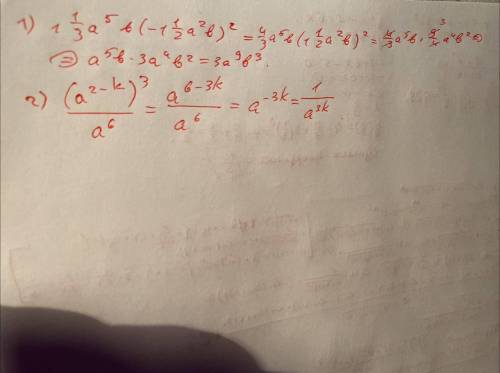 1) 1 1/3 a⁵ в (-1 1/2 a² в)² = 4/3 a⁵ в (1 1/2 a² в)² = 4/3 a⁵ в · 9/4 a⁴ в² ⊜
⊜ a⁵ в · 3 a⁴ в² = 3 a⁹ в³.
2) (a²⁻ᵏ)³ / a⁶ = a⁶⁻³ᵏ / a⁶ = a⁻³ᵏ = 1 / a³ᵏ.